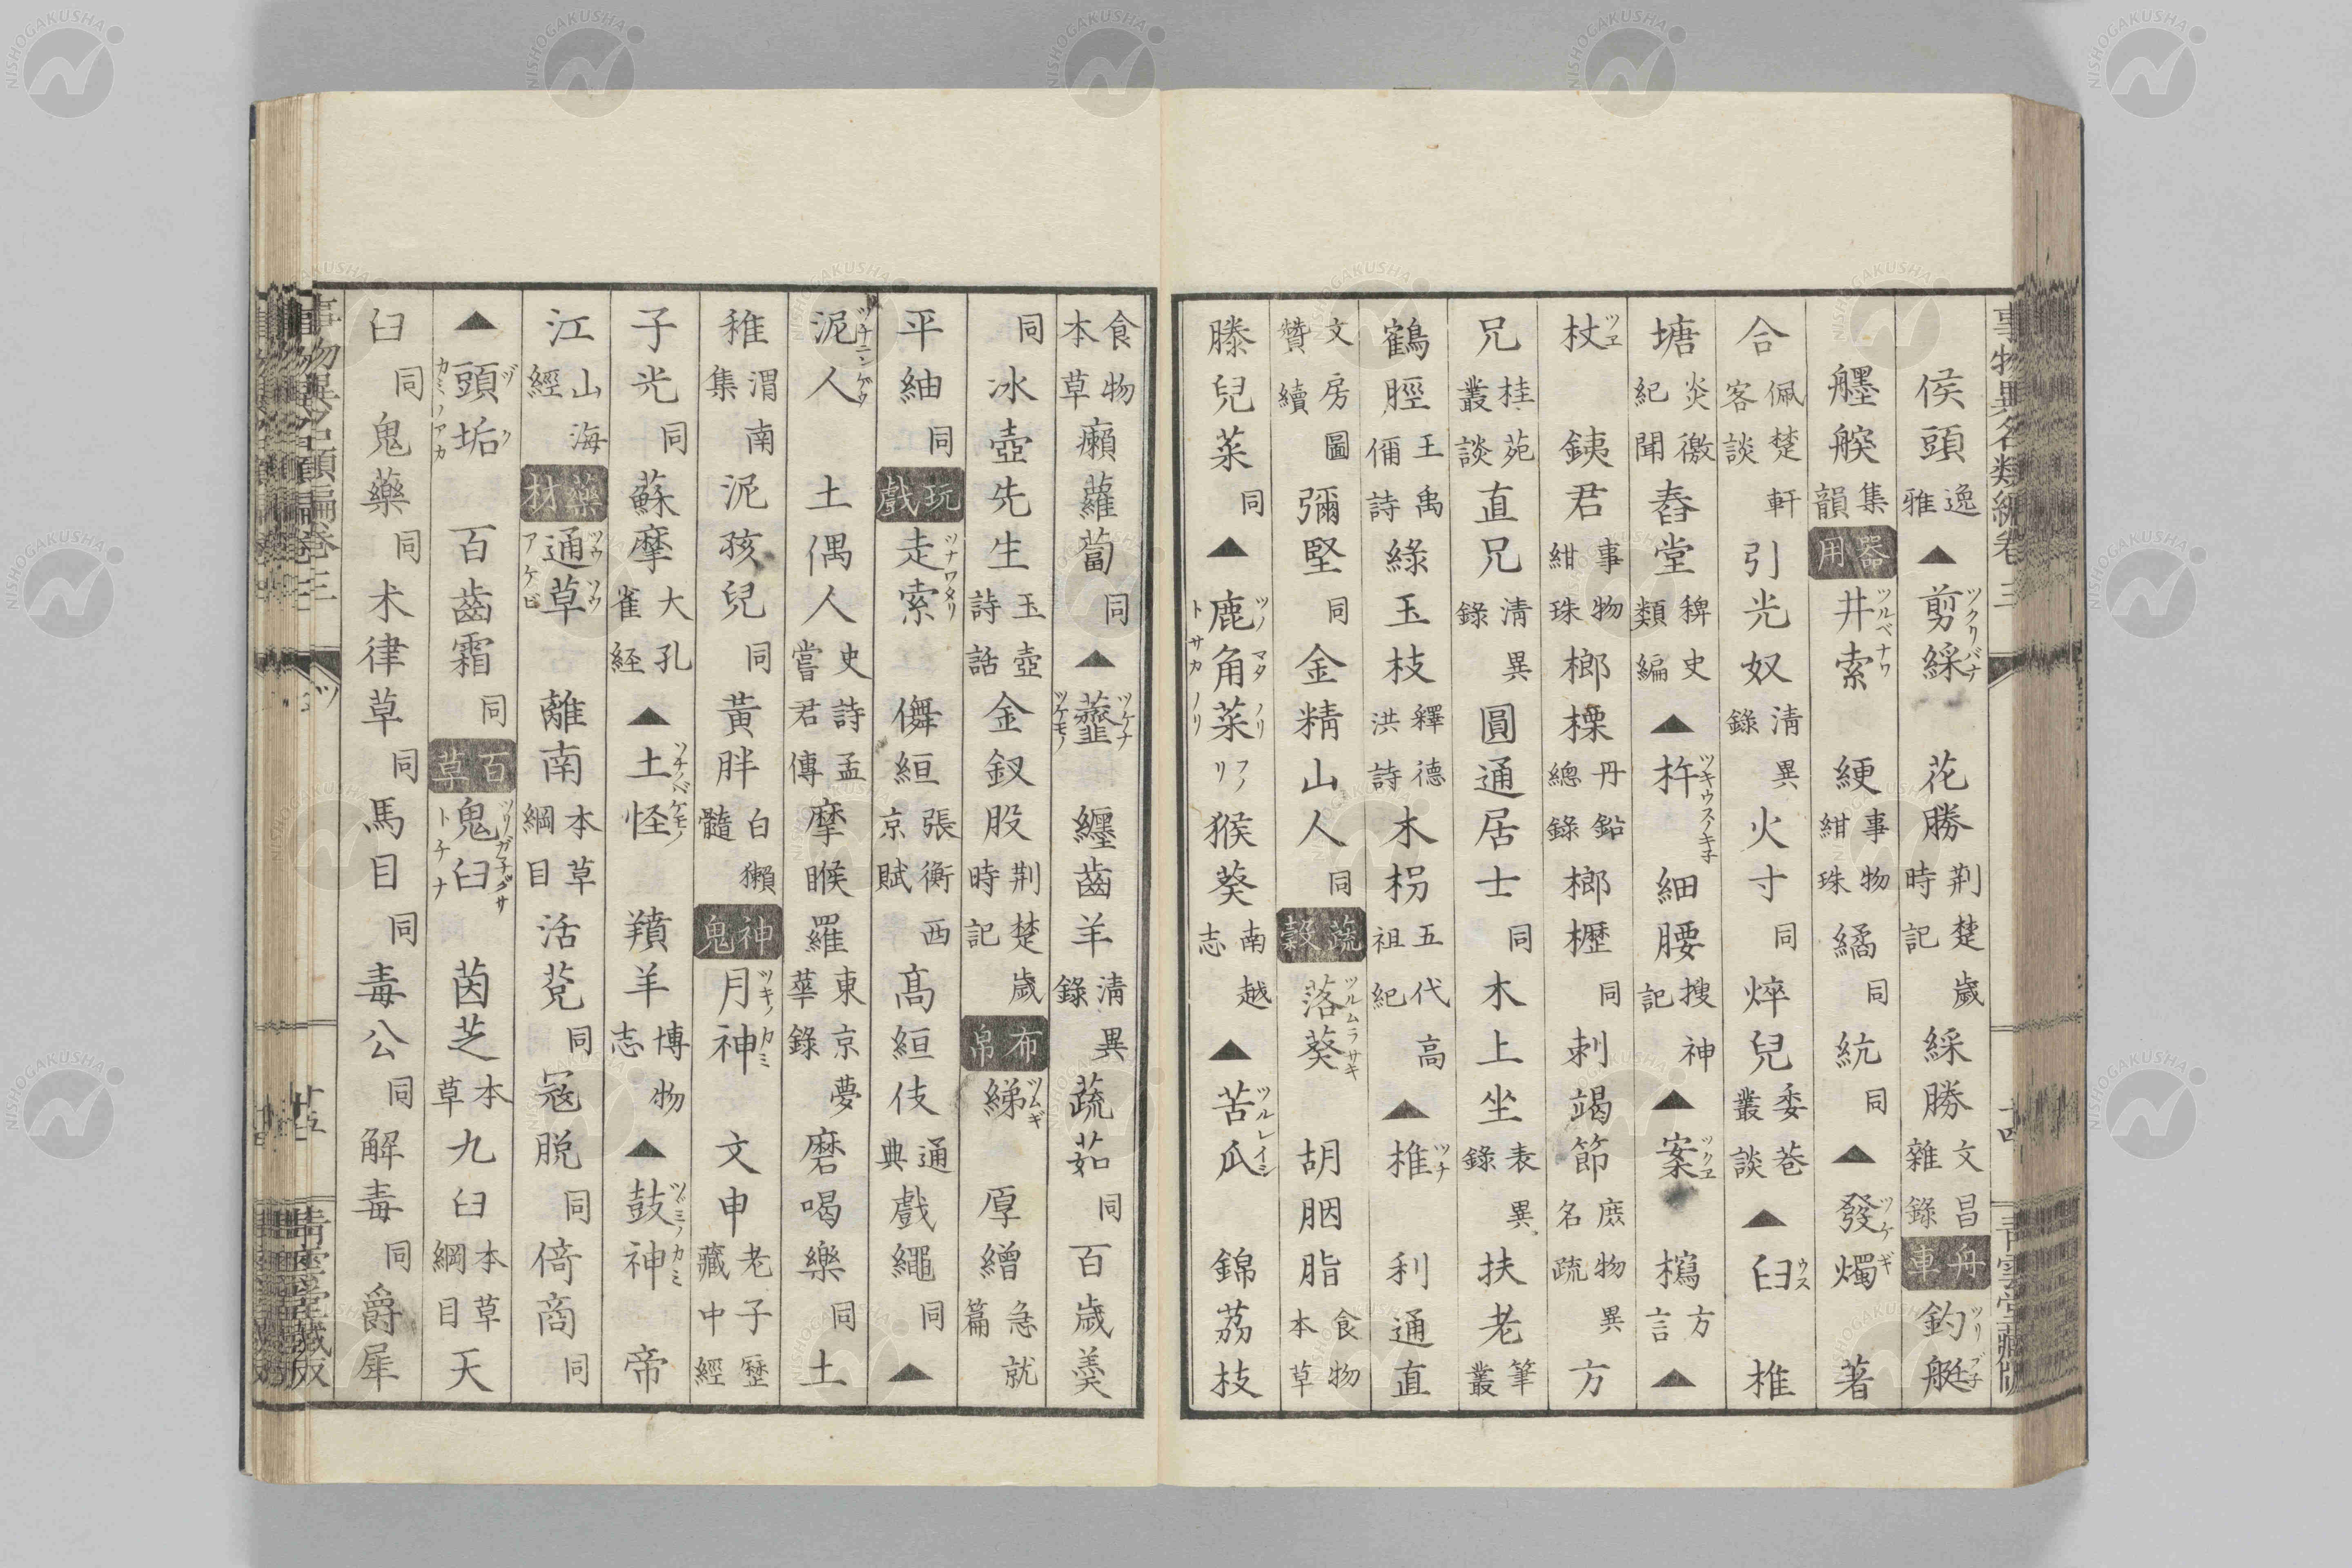 事物異名類編卷三 十四 青雲堂藏版
侯頭 逸雅 ▲ 剪綵 ツクリバナ 花勝 荊楚歲時記 綵勝 文昌雜錄 舟車 釣艇 ツリブ子
集韻 器用 井索 ツルベナワ 綆 事物紺珠 繘 同 統 同 ▲ 發燭 ツケギ 著
合 佩楚軒客談 引光奴 清異錄 火寸 同 焠兒 委巷叢談 ▲ 臼 ウス 椎
塘 炎徼紀聞 舂堂 稗史類編 ▲ 杵 ツキウスノキ子 細腰 搜神記 ▲ 案 ツクヱ 方言 ▲
杖 ツヱ 銕君 事物紺珠 榔栗 丹鉛總錄 榔櫪 同 刺竭節 庶物異名疏 方
兄 桂苑叢談 直兄 清異錄 圓通居士 同 木上坐 表異錄 扶老 筆叢
鶴脛 王禹偁詩 綠玉枝 釋德洪詩 木枴 五代高祖紀 ▲ 椎 ツチ 利通直
文房圖贊續 彌堅 同 金精山人 同 蔬穀 落葵 ツルムラサキ 胡胭脂 食物本草
滕兒菜 同 ▲ 鹿角菜 ツノマタノリ トサカノリ フノリ 猴葵 南越志 ▲ 苦瓜 ツルレイシ 錦荔枝
食物本草 癩蘿蔔 同 ▲ 虀 ツケナ ツケモノ 纏齒羊 清異錄 蔬茹 同 百歲羹
同 冰壺先生 玉壺詩話 金釵股 荊楚歲時記 布帛 綈 ツムギ 厚繒 急就篇
平紬 同 玩戲 走索 ツナワタリ 儛絙 張衡西京賦 高絙伎 通典 戲繩 同 ▲
泥人 ツチニンゲウ 土偶人 史詩孟嘗君傳 摩睺羅 東京夢華錄 磨喝樂 同 土
稚 渭南集 泥孩兒 同 黃胖 白獺髓 神鬼 月神 ツキノカミ 文申 老子歷藏中經
子光 同 蘇摩 大孔雀経 ▲ 土怪 ツチノベケモノ 羵羊 博物志 ▲ 鼓神 ツヾミノカミ 帝
江 山海經 藥材 通草 ツウソウ アケビ 離南 本草綱目 活莌 同 寇脫 同 倚商 同
▲ 頭垢 ヅク カミノアカ 百齒霜 同 百草 鬼臼 ツリガ子グサ トチナ 茵芝 本草 九臼 本草綱目 天
臼 同 鬼藥 同 朮律草 同 馬目 同 毒公 同 解毒 同 爵犀
事物異名類編卷三 ツ 十五 青雲堂藏版
NISHOGAKUSHA